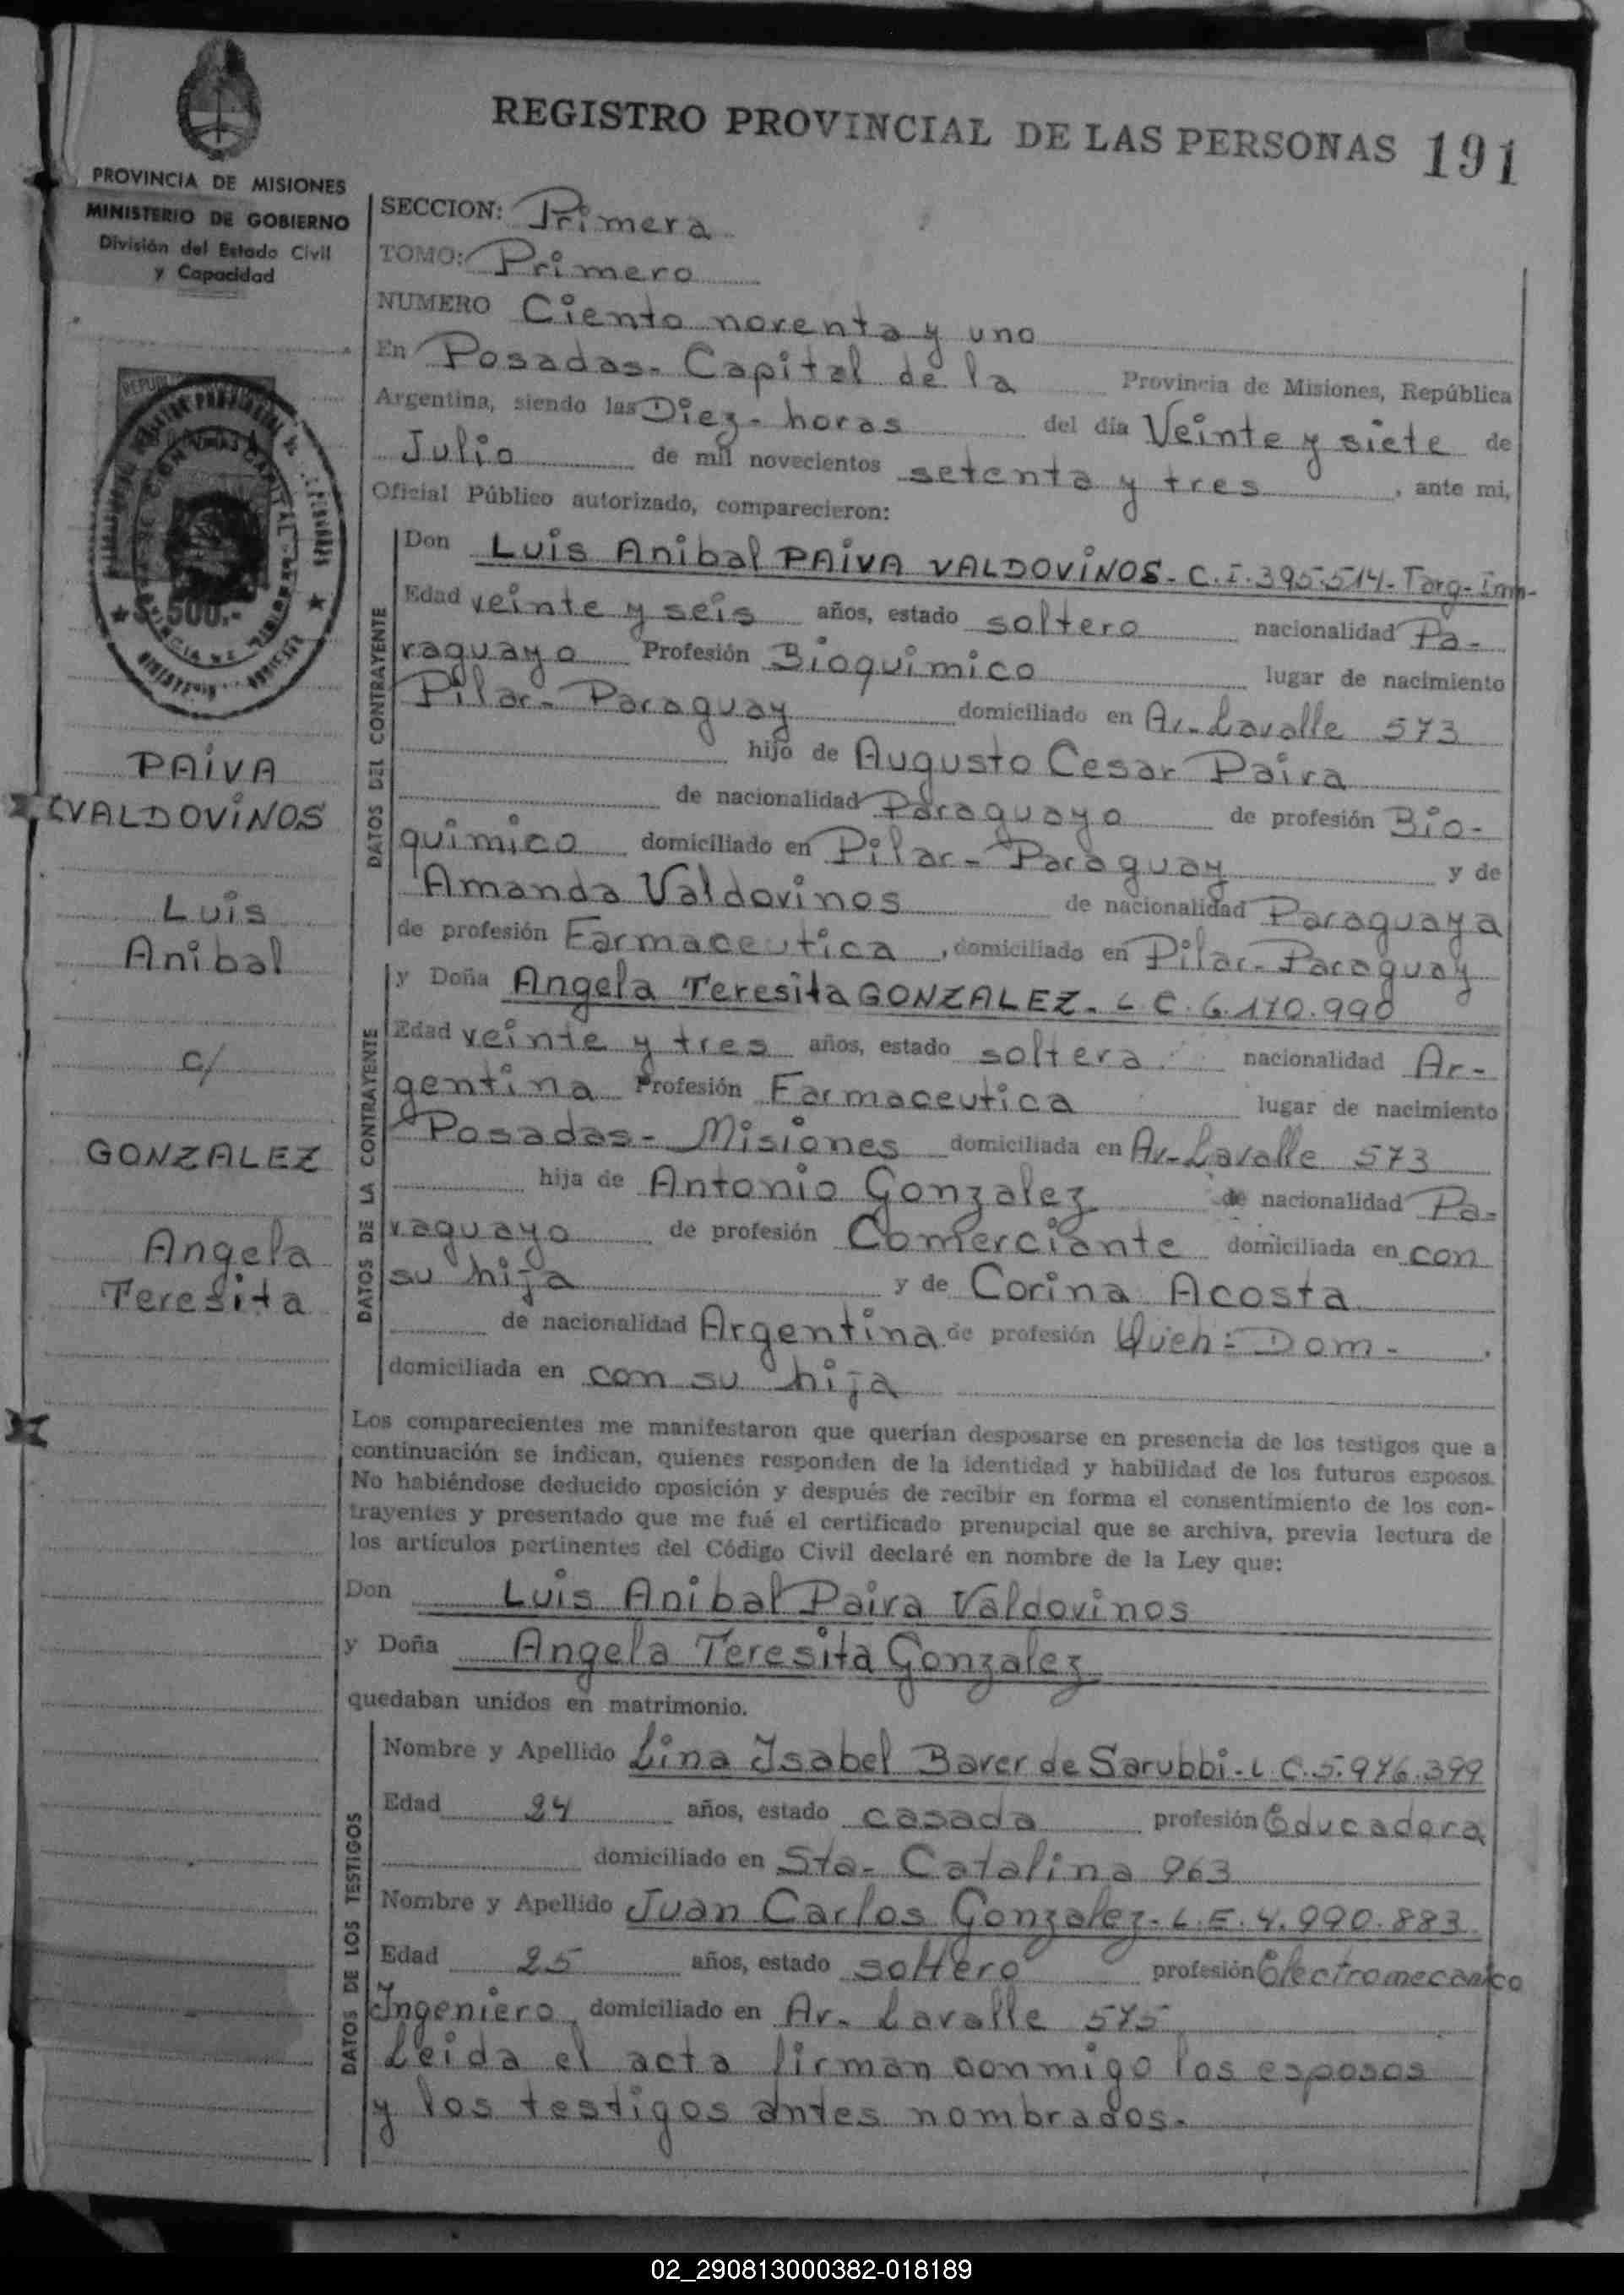 REGISTRO PROVINCIAL DE LAS PERSONAS 191
PROVINCIA DE MISIONES
MINISTERIO DE GOBIERNO
División del Estado Civil
y Capacidad
$ 500.-
PAIVA
VALDOVINOS
Luis
Anibal
c/
GONZALEZ
Angela
Teresita
SECCION: Primera
TOMO: Primero
NUMERO Ciento noventa y uno
En Posadas - Capital de la Provincia de Misiones, República
Argentina, siendo las Diez - horas del día Veinte y siete de
Julio de mil novecientos setenta y tres, ante mi,
Oficial Público autorizado, comparecieron:
DATOS DEL CONTRAYENTE
Don Luis Anibal PAIVA VALDOVINOS - C.I. 395.514 - Targ - Inm -
Edad veinte y seis años, estado soltero nacionalidad Pa-
raguayo Profesión Bioquimico lugar de nacimiento
Pilar - Paraguay domiciliado en Av. Lavalle 573
hijo de Augusto Cesar Paiva
de nacionalidad Paraguayo de profesión Bio-
quimico domiciliado en Pilar - Paraguay y de
Amanda Valdovinos de nacionalidad Paraguaya
de profesión Farmaceutica, domiciliado en Pilar - Paraguay
DATOS DE LA CONTRAYENTE
y Doña Angela Teresita GONZALEZ - L.C. 6.170.990
Edad veinte y tres años, estado soltera nacionalidad Ar-
gentina Profesión Farmaceutica lugar de nacimiento
Posadas - Misiones domiciliada en Av - Lavalle 573
hija de Antonio Gonzalez de nacionalidad Pa-
raguayo de profesión Comerciante domiciliada en con
su hija y de Corina Acosta
de nacionalidad Argentina de profesión Queh = Dom -
domiciliada en con su hija
Los comparecientes me manifestaron que querían desposarse en presencia de los testigos que a
continuación se indican, quienes responden de la identidad y habilidad de los futuros esposos.
No habiéndose deducido oposición y después de recibir en forma el consentimiento de los con-
trayentes y presentado que me fué el certificado prenupcial que se archiva, previa lectura de
los artículos pertinentes del Código Civil declaré en nombre de la Ley que:
Don Luis Anibal Paiva Valdovinos
y Doña Angela Teresita Gonzalez
quedaban unidos en matrimonio.
DATOS DE LOS TESTIGOS
Nombre y Apellido Lina Isabel Baver de Sarubbi - L.C. 5.976.399
Edad 24 años, estado casada profesión Educadora
domiciliado en Sta - Catalina 963
Nombre y Apellido Juan Carlos Gonzalez - L.E. 4.990.883
Edad 25 años, estado soltero profesión Electromecanico
Ingeniero domiciliado en Av - Lavalle 575
Leida el acta firman conmigo los esposos
y los testigos antes nombrados.
02_290813000382-018189